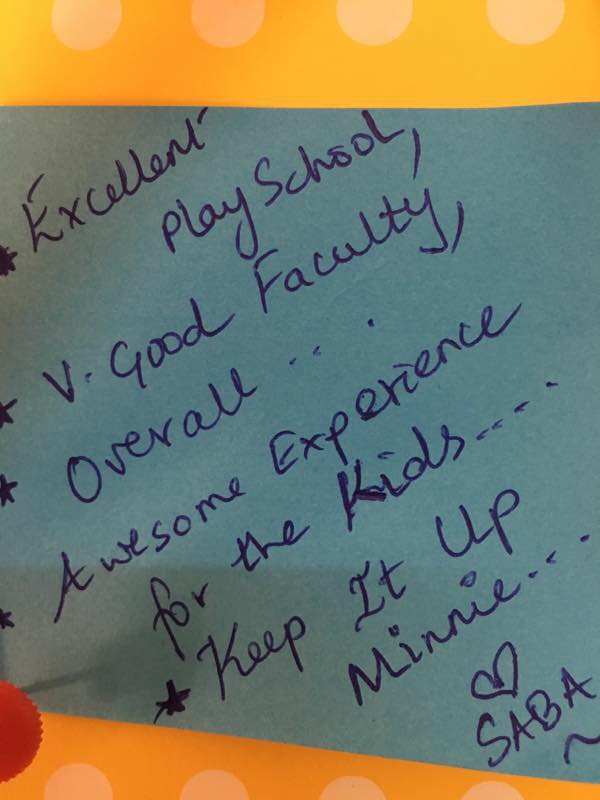 ★ Excellent
Play School,
★ V. Good Faculty,
★ Overall ...
★ Awesome Experience
for the Kids....
★ Keep It Up
Minnie...
♡
SABA
~